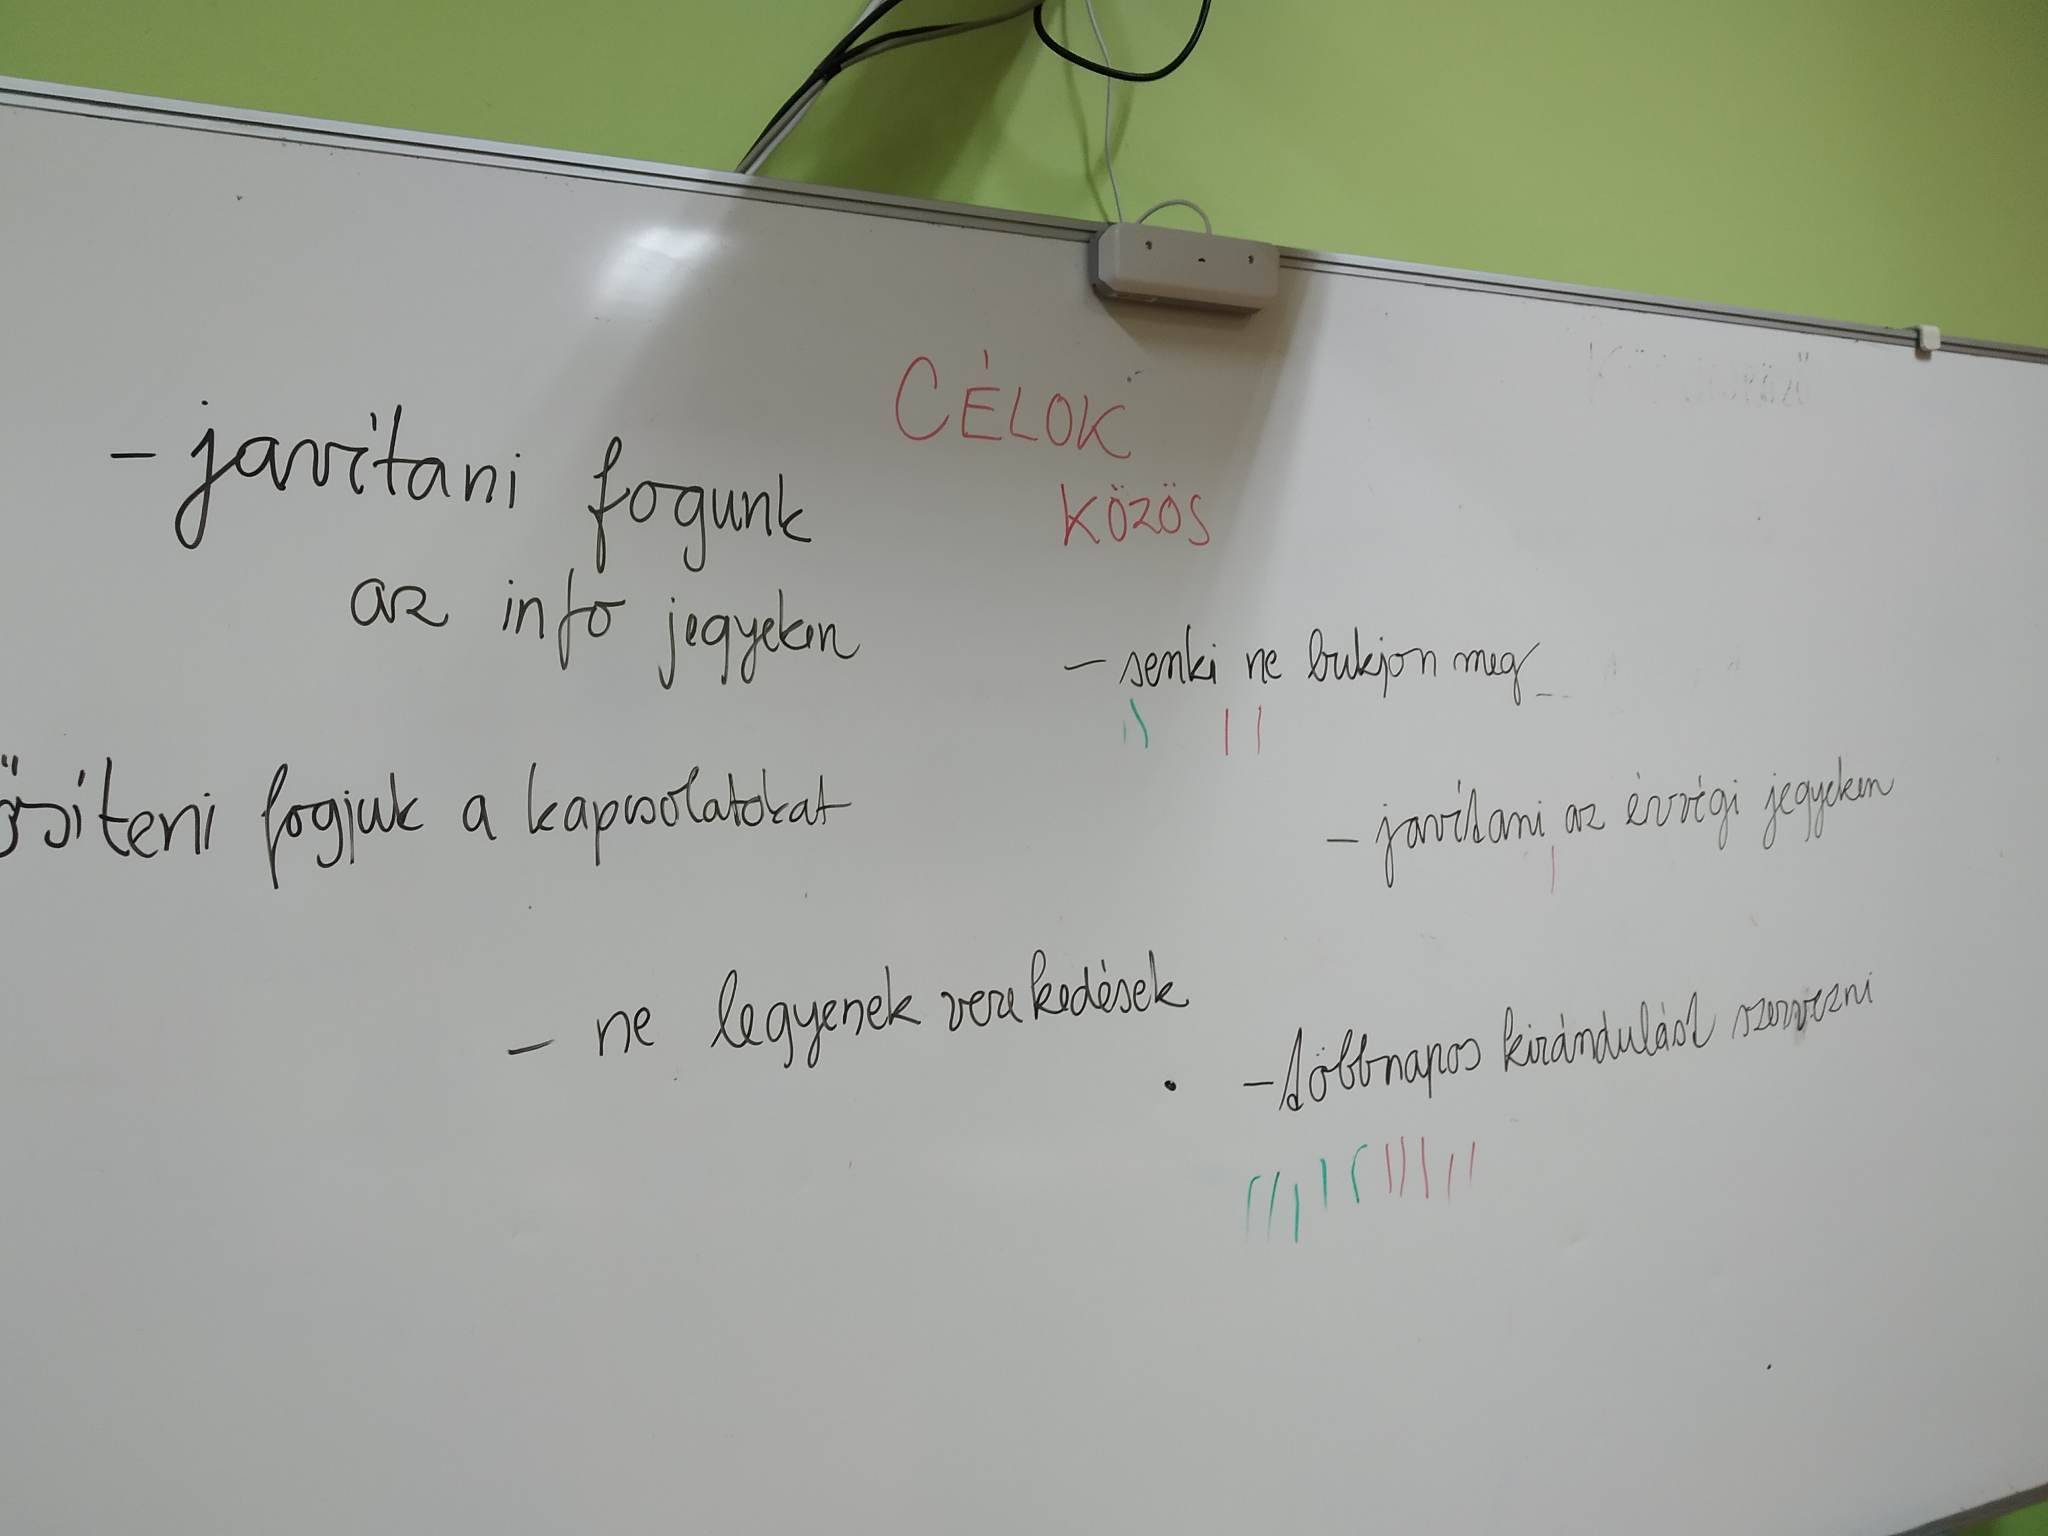 CÉLOK
KÖZÖS
- javítani fogunk
az info jegyeken
ősíteni fogjuk a kapcsolatokat
- ne legyenek verekedések
- senki ne bukjon meg
- javítani az évvégi jegyeken
- többnapos kirándulást szervezni